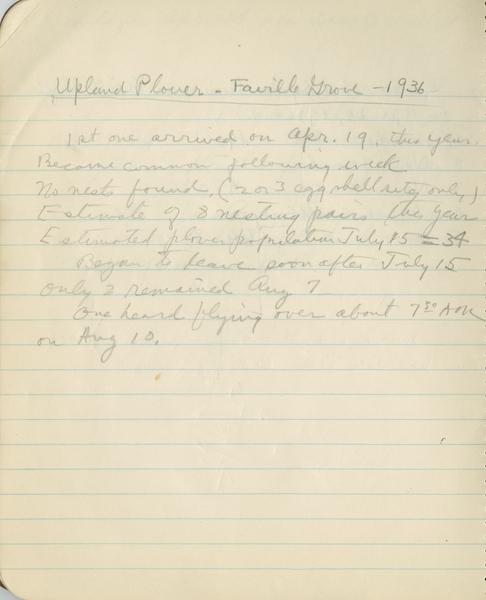 Upland Plover - Faville Grove - 1936
1st one arrived on Apr. 19, this year.
Became common following week
No nests found, (2 or 3 egg shell sites only)
Estimate of 8 nesting pairs this year
Estimated plover population July 15 = 34
Began to leave soon after July 15
Only 2 remained Aug 7
One heard flying over about 7 30
on Aug 10.